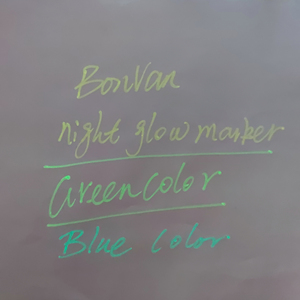 BonVan
night glow marker
Green color
Blue color